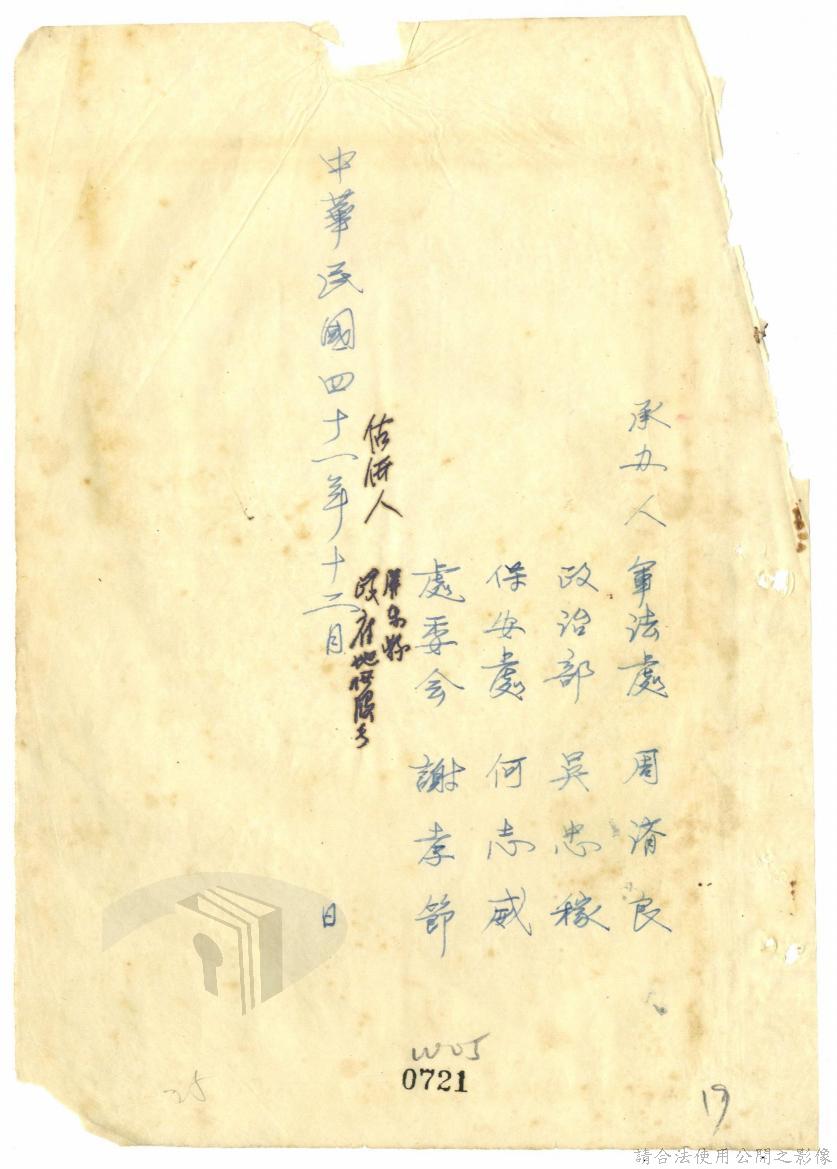 承办人 軍法處 周濟良
政治部 吳忠稼
保安處 何志威
處委会 謝孝節
估價人 屏東縣
政府地價股長
中華民國四十一年十二月 日
W05
0721
19
25
請合法使用公開之影像